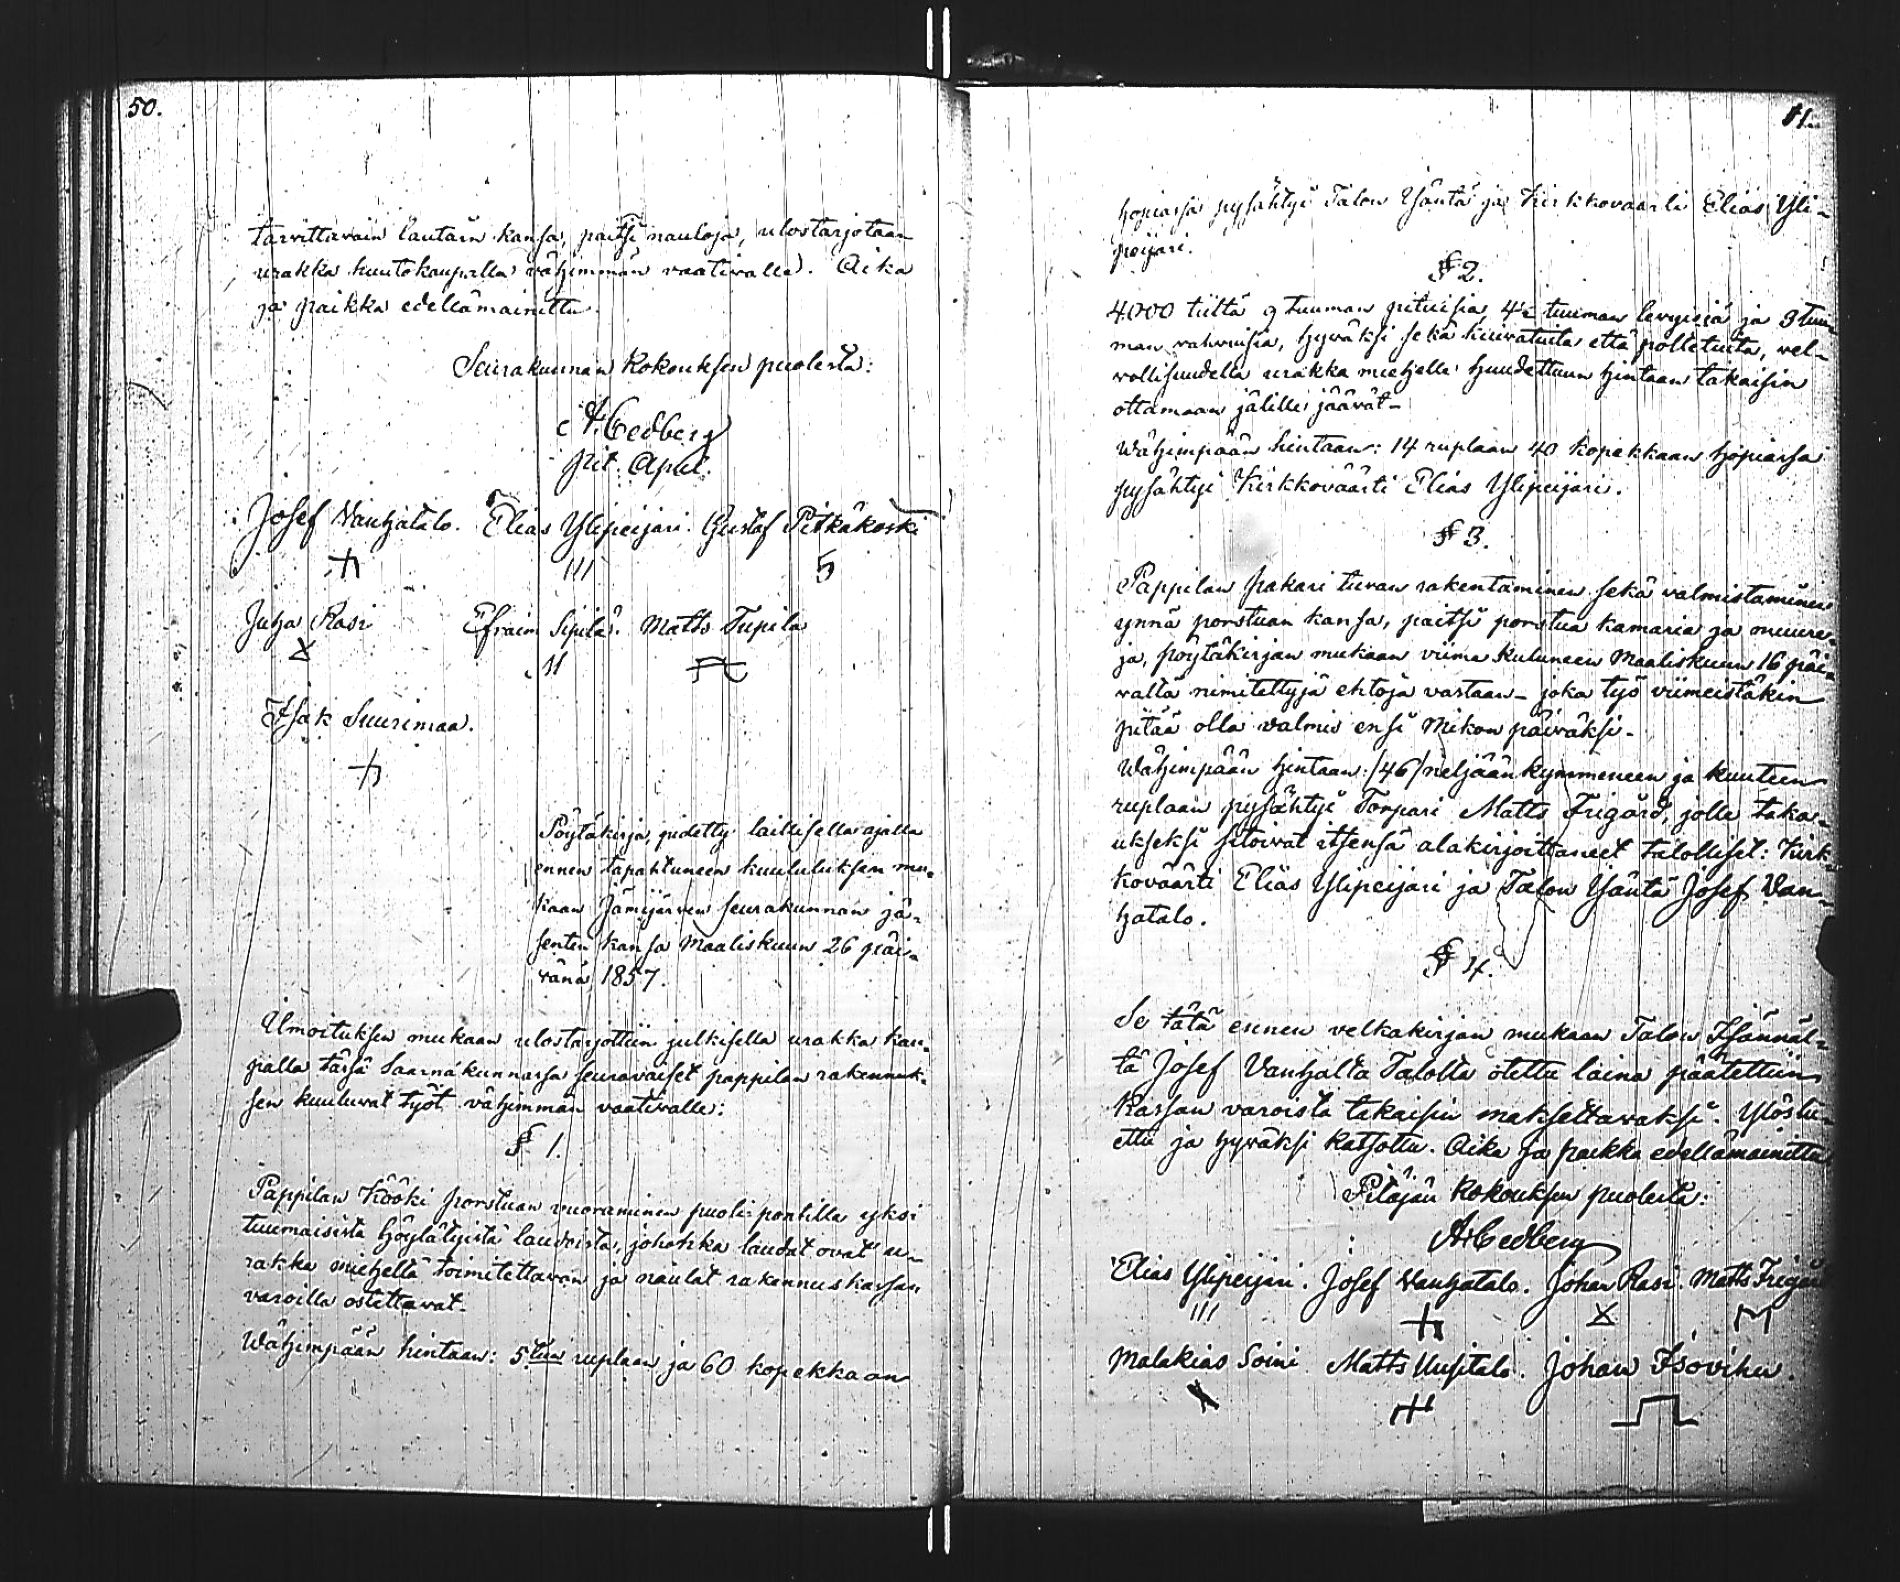 50.
tarvittavain lautain kansa, paitsi nauloja, ulostarjotaan
urakka huutokaupalla vähimmän vaativalle. Aika
ja paikka edellämainittu.
Seurakunnan Kokouksen puolesta:
A. Cedberg
pit. Apul.
Josef Vanhatalo. Elias Ylipeijari. Gustaf Pitkäkoski
III 5
Juha Rasi Efraim Sipilä. Matts Tupila
X II
Isak Suurimaa.
Pöytäkirja, pidetty laillisella ajalla
ennen tapahtuneen kuulutuksen mu-
kaan Jämijärven seurakunnan jä-
senten kansa Maaliskuun 26 päi-
vänä 1857.
Ilmoituksen mukaan ulostarjottiin julkisella urakka kau-
palla tässä Saarnakunnassa seuravaiset pappilan rakennuk-
sen kuuluvat työt vähimmän vaativalle:
§ 1.
Pappilan Kööki porstuan vuoraminen puoli-pontilla yksi
tuumaisista höylätyistä laudoista, johokka laudat ovat u-
rakka mieheltä toimitettavan ja naulat rakennuskassan
varoilla ostettavat.
Wähimpään hintaan: 5teen ruplaan ja 60 kopekkaan
51.
hopiassa pysähtyi Talon Isäntä ja Kirkkovaarti Elias Yli-
peijari.
§ 2.
4000 tiiltä 9 tuuman pituisia 4½ tuuman levyisiä ja 3 tuu-
man vahvuisia, hyväksi sekä kuivatuita että poltetuita, vel-
vollisuudella urakka miehelle huudettuun hintaan takaisin
ottamaan jälille jäävät-
Wähimpään hintaan: 14 ruplaan 40 kopekkaan hopiassa
pysähtyi Kirkkoväärti Elias Ylipeijari.
§ 3.
Pappilan pakari tuvan rakentaminen sekä valmistaminen
ynnä porstuan kansa, paitsi porstua kamaria ja muure-
ja, pöytäkirjan mukaan viime kuluneen Maaliskuun 16 päi-
vältä nimitettyjä ehtoja vastaan- joka työ viimeistäkin
pitää olla valmis ensi Mikon päiväksi-
Wähimpään hintaan: /46/ neljäänkymmeneen ja kuuteen
ruplaan pysähtyi Torpari Matts Frigård, jolle taka-
ukseksi sitovat itsensä alakirjoittaneet talolliset: Kirk-
koväärti Elias Ylipeijari ja Talon Isäntä Josef Van-
hatalo.
§ 4.
Se tätä ennen velkakirjan mukaan Talon Isännäl-
tä Josef Vanhalta Talolta otettu laina päätettiin
Kassan varoista takaisin maksettavaksi. Ylöslu-
ettu ja hyväksi katsottu. Aika ja paikka edellämainittu
Pitäjän Kokouksen puolesta:
A. Cedberg
Elias Ylipeijari. Josef Vanhatalo. Johan Rasi. Matts Frigård
III X
Malakias Soini Matts Uusitalo. Johan Isovihu.